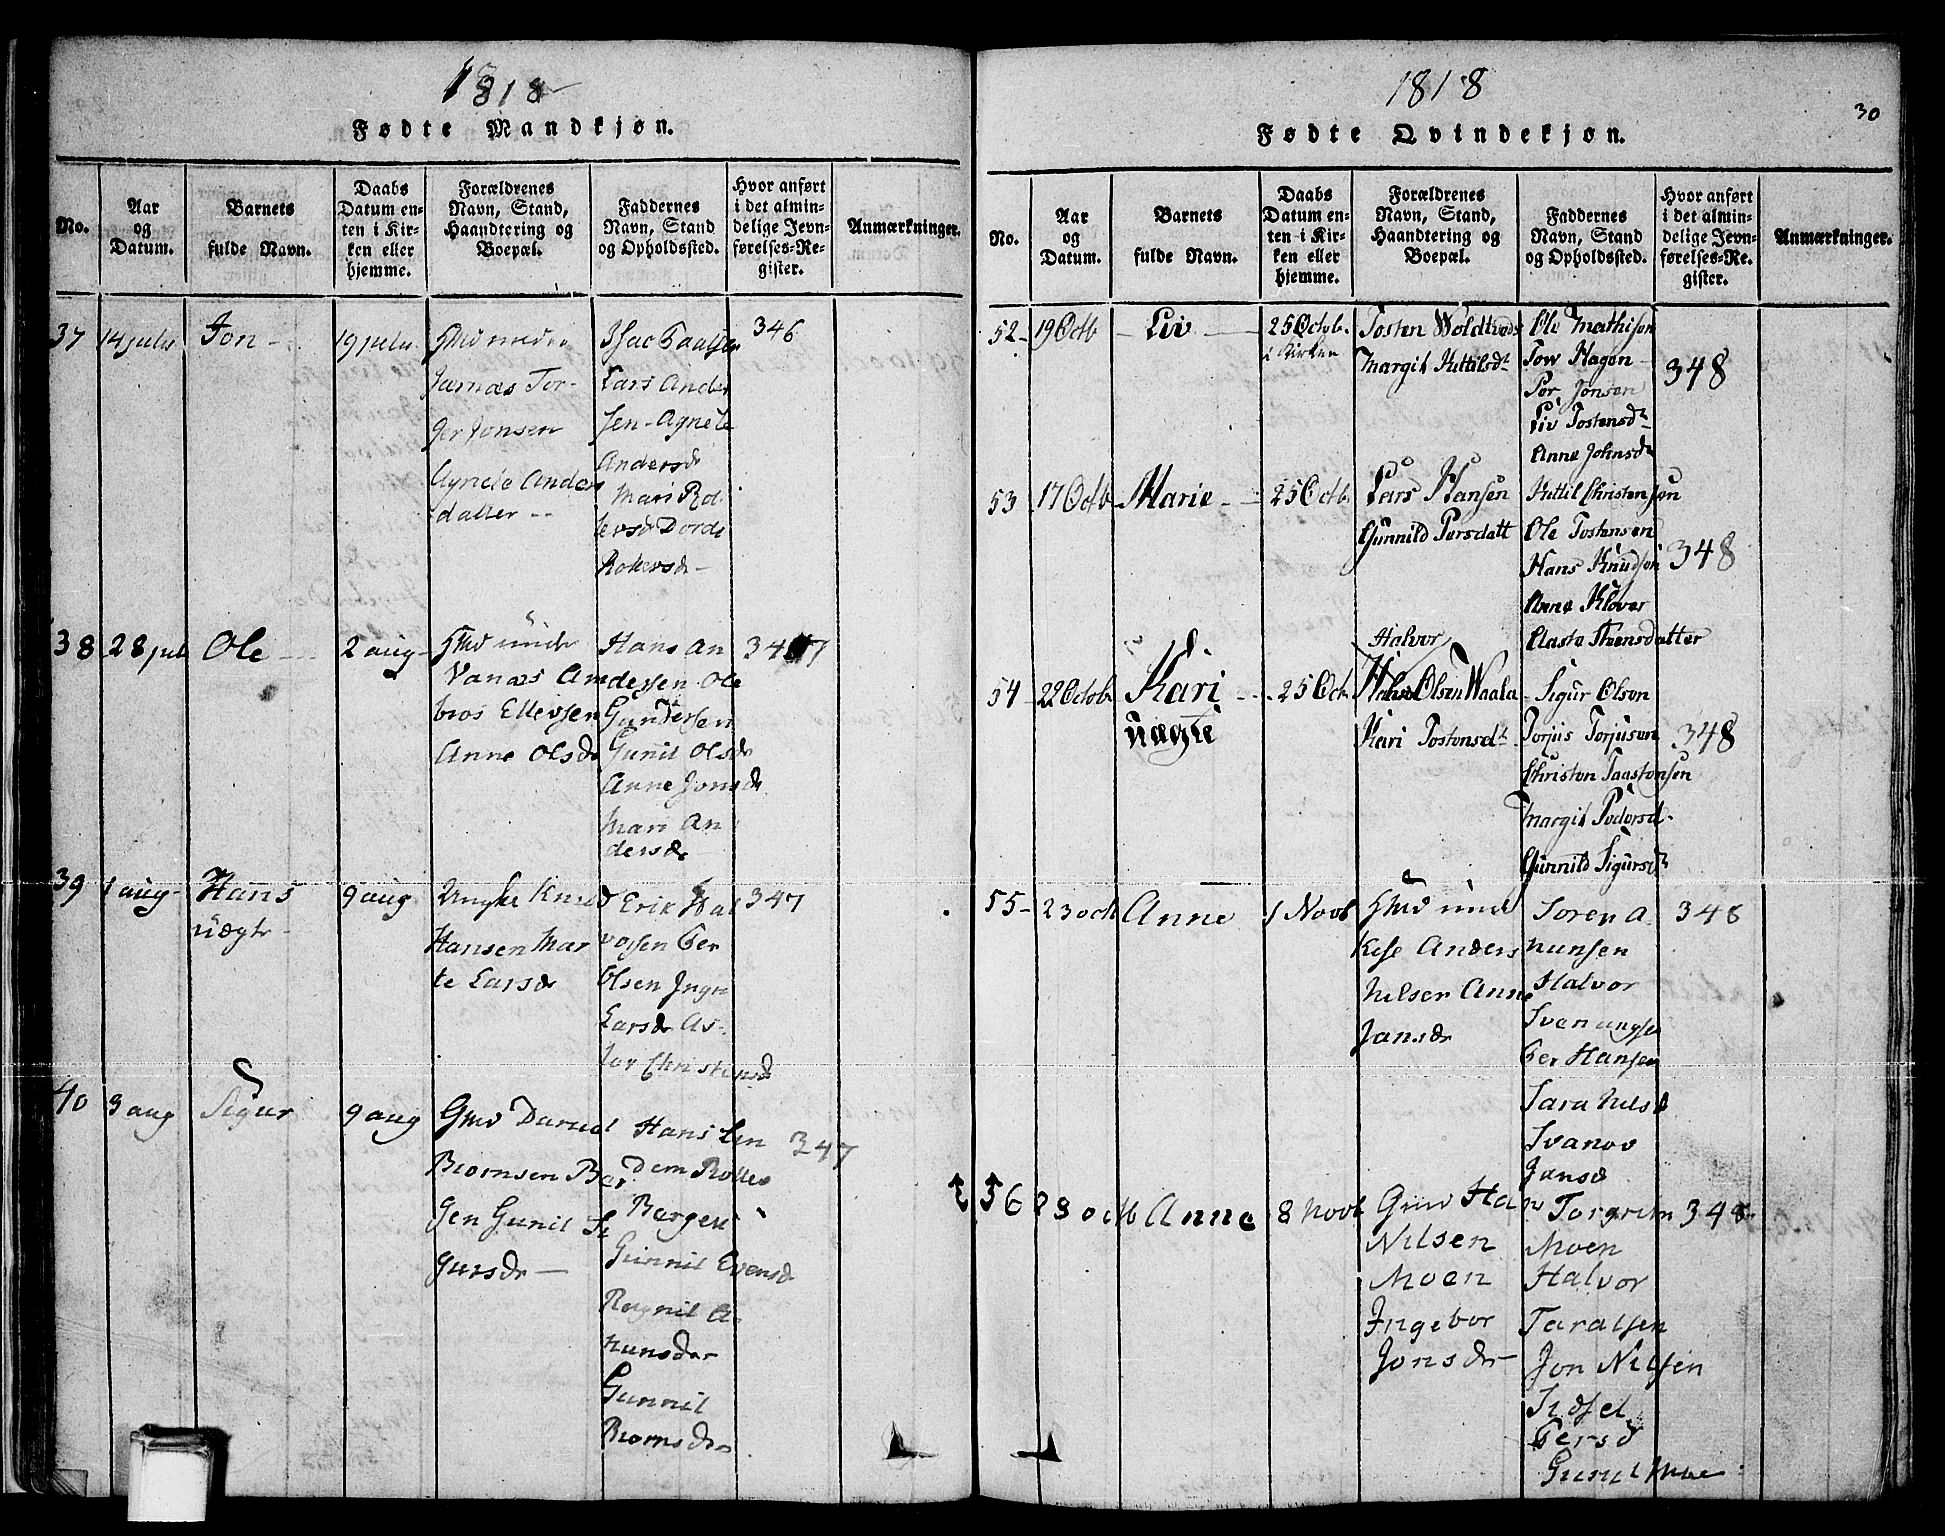 1818
Fødte Mandkjøn.
No.
Aar
og
Datum.
Barnets
fulde Navn.
Daabs
Datum en-
ten i Kir-
ken eller
hjemme.
Forældrenes
Navn, Stand,
Haandtering og
Boepæl.
Faddernes
Navn, Stand
og Opholdssted.
Hvor anført
i det almin-
delige Jevn-
førelses-Re-
gister.
Anmærkninger.
37
14 julii
Jon
19 julii
Jarnæs Tor-
ger Jonsen
Agnete Anders
datter
Isac Paalsen
Lars Ander
sen Agnete
Andersdr
Mari Rol-
lersdr Dorde
346
38
28 jul
Ole
2 aug
Vanæs Am
bros Ellevsen
Anne Olsdr
Hans An
derssen Ole
Gundersen
Gunil Olsdr
Anne Jonsdr
Mari An
dersdr
347
39
1 aug
Hans
uægte
9 aug
Ungke Knud
Hansen Mar
te Larsdr
Erik Hal
vorsen Per
Olsen Ingr
Larsdr As-
lor Christensdr
347
40
3 aug
Sigur
9 aug
Gmd Daniel
Biornsen Ber
gen Gunil Si
gursdr
Hans Lin
dem Rolle
Bergen
Gunnil Evensd
Ragnil A-
nunsder
Gunnil
Biornsder
347
1818
30
Fødte Qvindekjøn.
No.
Aar
og
Datum.
Barnets
fulde Navn.
Daabs
Datum en-
ten i Kir-
ken eller
hjemme.
Forældrenes
Navn, Stand,
Haandtering og
Boepæl.
Faddernes
Navn, Stand
og Opholdssted.
Hvor anført
i det almin-
delige Jevn-
førelses-Re-
gister.
Anmærkninger.
52
19 Octb
Liv
25 Octob.
i Kirken
Tosten
Margit Kittilsdt
Ole Mathisen
Tow Hagen
Per Jonsen
Liv Tostensdt
Anne Johnsdt
348
53
17 Octb
Marie
25 Octb.
Lars Hansen
Gunnild Persdatt
Kittil Christensøn
Ole Tostensen
Hans Knudsøn
Anne Kløver
Aaste datter
348
54
22 Octob
Kari
uægte
25 Octb
Halvor
Olsen Waala
Kari Tostensdt
Sigur Olson
Torjus Torjuson
Christen Taastensen
Margit Pedersd.
Gunnild Sigursdt
348
55
23 oct
Anne
1 Novb
Gmd unde
Kise Anders
Nilsen Anne
Jansdr
Soren A
nunsen
Halvor
Sven ungk
Per Hansen
Sara Nilsd
Jansd
348
56
28 octb
Anne
8 Novb
Gmd Han
Nilsen
Moen
Ingebor
Jonsdr
Torgrim
Moen
Halvor
Taralsen
Jon Nilsen
Sidsel
Persd
Gunil Moe
348